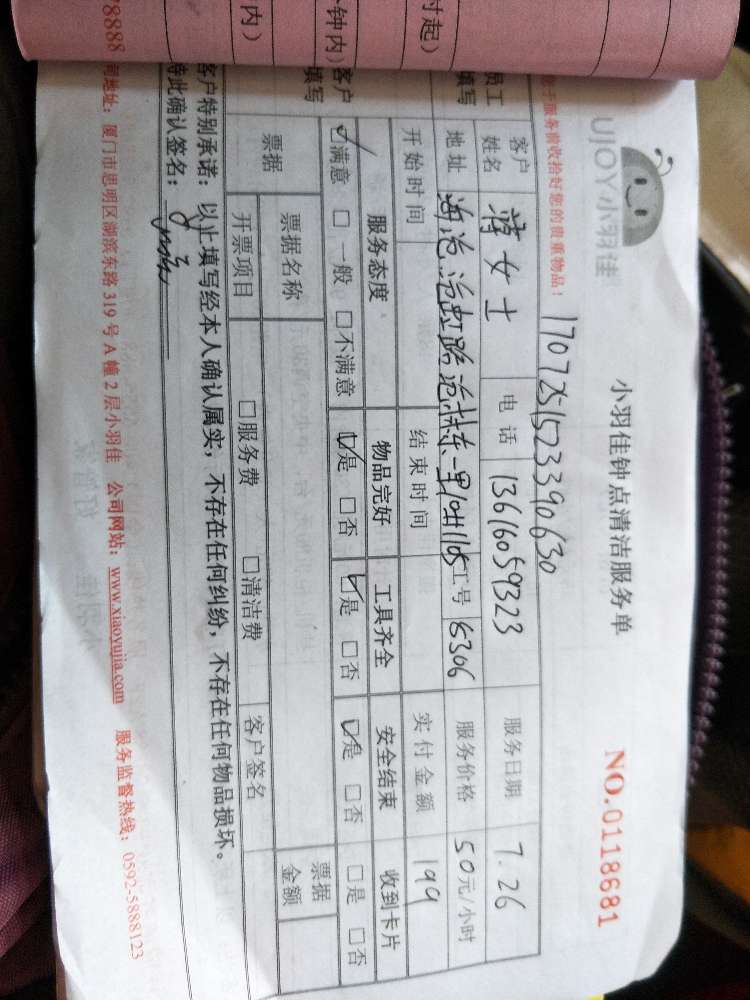 时起)
钟内)
内)
UJOY小羽佳
小羽佳钟点清洁服务单
NO.0118681
于服务前收拾好您的贵重物品!
1707251523390630
员工填写
客户姓名 蒋女士 电话 13616059323 服务日期 7.26
地址 海沧沧虹路沧林东一里 1105 工号 6306 服务价格 50元/小时
开始时间 结束时间 实付金额 199
客户填写
服务态度 物品完好 工具齐全 安全结束 收到卡片
☑满意 □一般 □不满意 ☑是 □否 ☑是 □否 ☑是 □否 □是 □否
票据 票据名称 票据金额
开票项目 □服务费 □清洁费 客户签名
客户特别承诺:以上填写经本人确认属实,不存在任何纠纷,不存在任何物品损坏。
特此确认签名:
78888 司地址:厦门市思明区湖滨东路319号A幢2层小羽佳 公司网站:www.xiaoyujia.com 服务监督热线:0592-5888123